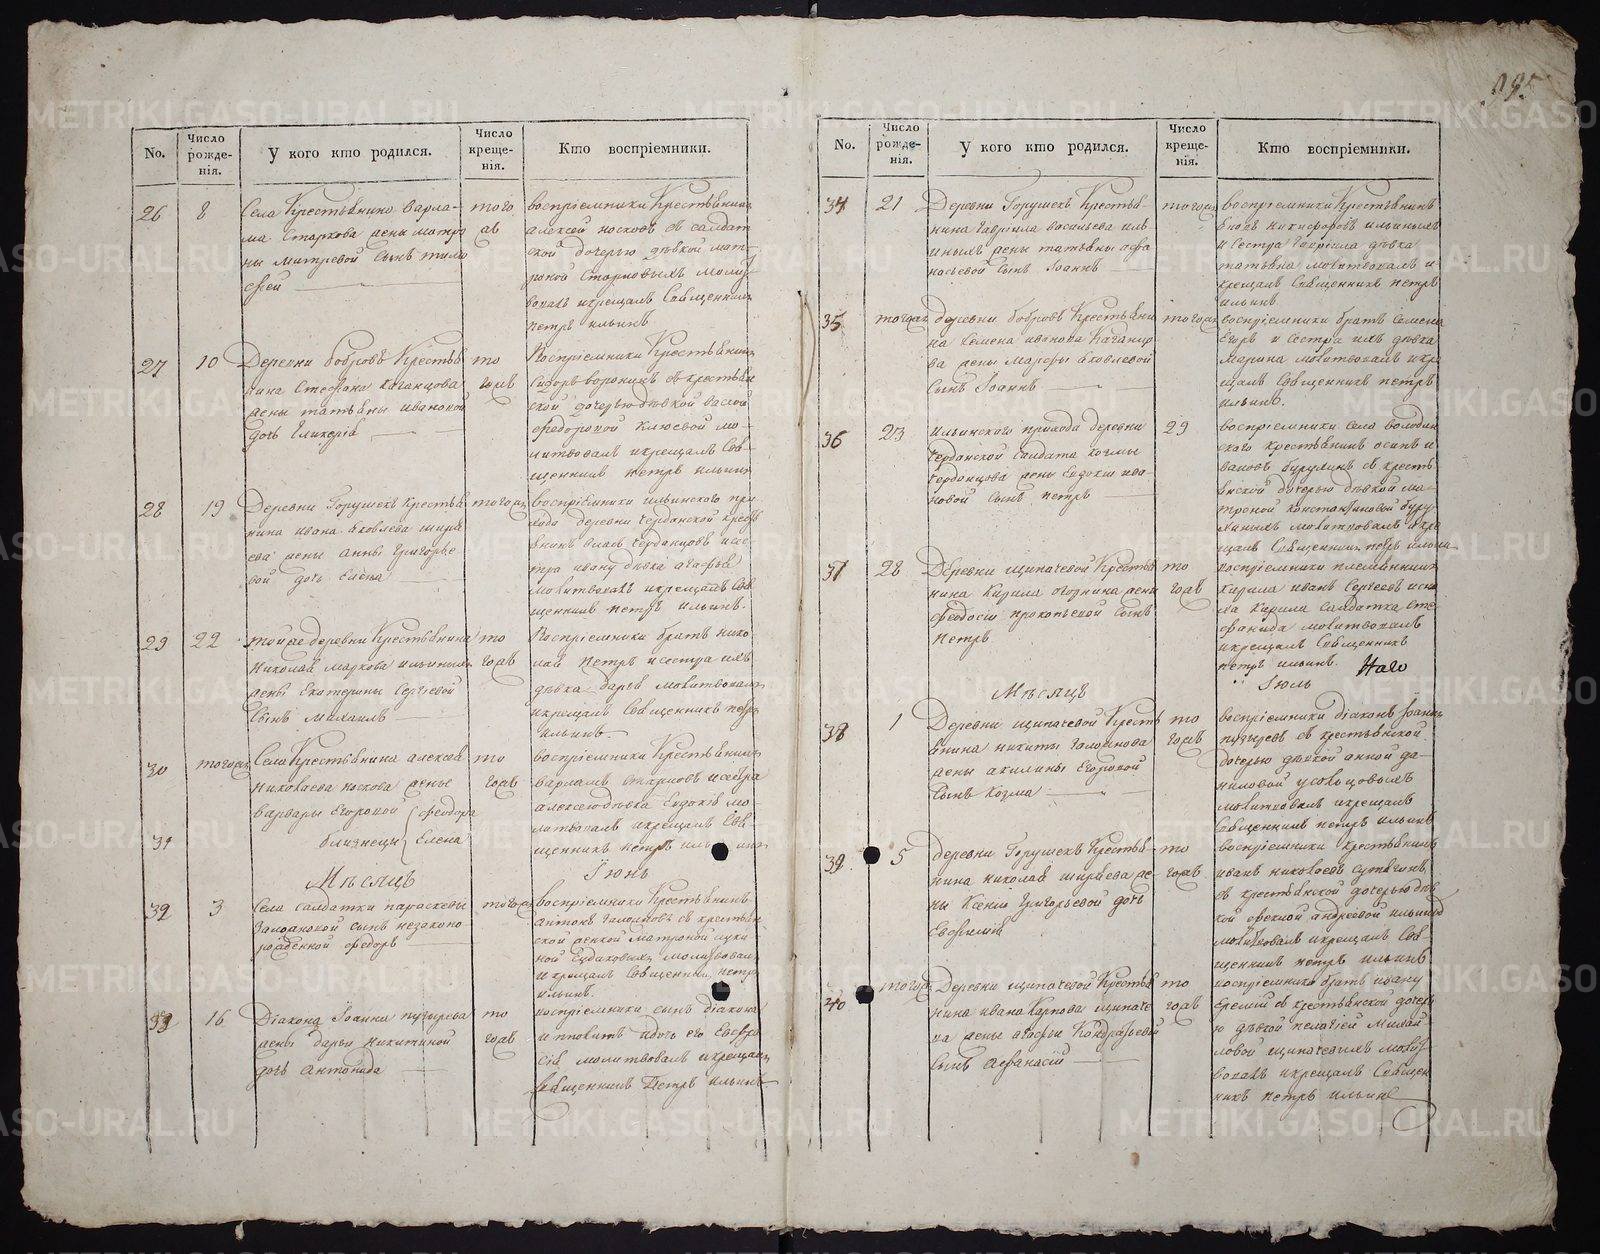 995
No.
Число рожде-
нія.
У кого кто родился.
Число креще-
нія.
Кто воспріемники.
26
8
Села Крестьянина Варла-
ма Старкова жены матро
ны Митревой сынъ тимо
фей
того
жъ
воспріемники Крестьянинъ
алексей носковъ съ салдат
ской дочерью девкой мат-
роной Старковыхъ молит
вовалъ икрещалъ Священникъ
петръ ильинъ
27
10
Деревни бобровъ Крестья
нина Стефана Каганцова
жены татьяны ивановой
дочь Гликерія
то
гожъ
Воспріемники Крестьянинъ
Сидоръ воронинъ съ крестьян
ской дочерью девкой
федоровой Клюевой мо-
литвовалъ икрещалъ Свя-
щенникъ петръ ильинъ
28
19
Деревни Горушекъ крестья
нина ивана яковлева ширя
ева жены анны григорье
вой дочь Елена
тогожъ
воспріемники ильинского при
хода деревни черданской крест
янинъ власъ черданцовъ исес-
тра ивану девка агафья
молитвовалъ икрещалъ Свя
щенникъ петръ ильинъ.
29
22
тойже деревни Крестьянина
Николая маркова ильиныхъ
жены Екатерины Сергіевой
сынъ михаилъ
то
гожъ
Воспріемники братъ нико-
лая петръ исестра ихъ
девка дарья молитвовалъ
икрещалъ Священникъ петръ
ильинъ.
30
тогожъ
Села Крестьянина алексея
Николаева носкова жены
варвары Егоровой
феодора
31
близнецы
Елена
то
гожъ
воспріемники Крестьянинъ
варламъ старковъ исестра
алексею девка Евдокія мо-
литвовалъ икрещалъ Свя
щенникъ петръ ильинъ
Мѣсяцъ
Іюнь
32
3
Села салдатки параскевы
сынъ незаконо-
рожденной федоръ
тогожъ
воспріемники Крестьянинъ
антонъ съ крестьян
ской женкой Матроной луки
ной молитвовалъ
икрещалъ Священникъ петръ
ильинъ.
33
16
Діакона Іоанна пузырева
жены дарьи Никитиной
дочь антонида
то
гожъ
воспріемники сынъ діакона
иполитъ идочь его Евфро
сія молитвовалъ икрещалъ
Священникъ Петръ ильинъ
No.
Число рожде-
нія.
У кого кто родился.
Число креще-
нія.
Кто воспріемники.
34
21
Деревни Горушекъ Крестья-
нина гавріила васильева иль-
иныхъ жены татьяны афа
насьевой сынъ Іоаннъ
тогожъ
воспріемники Крестьянинъ
яковъ никифоровъ ильиныхъ
и сестра гавріила девка
татьяна молитвовалъ и
крещалъ Священникъ петръ
ильинъ
35
тогожъ
деревни бобровъ Крестьяни
на Семена иванова Каганцо
ва жены Марфы яковлевой
сынъ Іоаннъ
тогожъ
воспріемники братъ Семена
Егоръ и Сестра ихъ девка
Марина молитвовалъ икре
щалъ Священникъ петръ
ильинъ.
36
23
ильинского прихода деревни
черданской салдата козмы
черданцова жены Евдокіи ива-
новой сынъ петръ
29
воспріемники села володин
ского крестьянинъ осипъ и
вановъ бурулинъ съ кресть
янской дочерью девкой ма-
троной константиновой буру
линыхъ молитвовалъ икре
щалъ Священникъ петръ ильинъ
37
28
Деревни щипачевой Крестья
нина Кирила жены
феодосіи прокопьевой сынъ
петръ
то
гожъ
воспріемники племянникъ
Кирила иванъ Сергеевъ исно
ха Кирила салдатка Сте
фанида молитвовалъ
икрещалъ Священникъ
петръ ильинъ.
Мѣсяцъ
Іюль
38
1
Деревни щипачевой Кресть
янина никиты
жены акилины Егоровой
сынъ Козма
то
гожъ
воспріемники діаконъ Іоаннъ
пузыревъ съ крестьянской
дочерью девкой анной да-
ниловой
молитвовалъ икрещалъ
Священникъ петръ ильинъ
39
5
деревни Горушекъ Крестья-
нина николая ширяева же
ны Ксеніи Григорьевой дочь
Евфимія
то
гожъ
воспріемники крестьянинъ
иванъ николаевъ
съ крестьянской дочерью дев
кой феклой андреевой ильиныхъ
молитвовалъ икрещалъ Свя-
щенникъ петръ ильинъ
40
тогожъ
Деревни щипачевой Крестья
нина ивана Карпова щипаче
ва жены агафьи Кондратьевой
сынъ афанасій
то
гожъ
воспріемники братъ ивану
Еремей съ крестьянской дочерь
ю девкой пелагіей михай
ловой щипачевыхъ молит-
вовалъ икрещалъ Священ
никъ петръ ильинъ